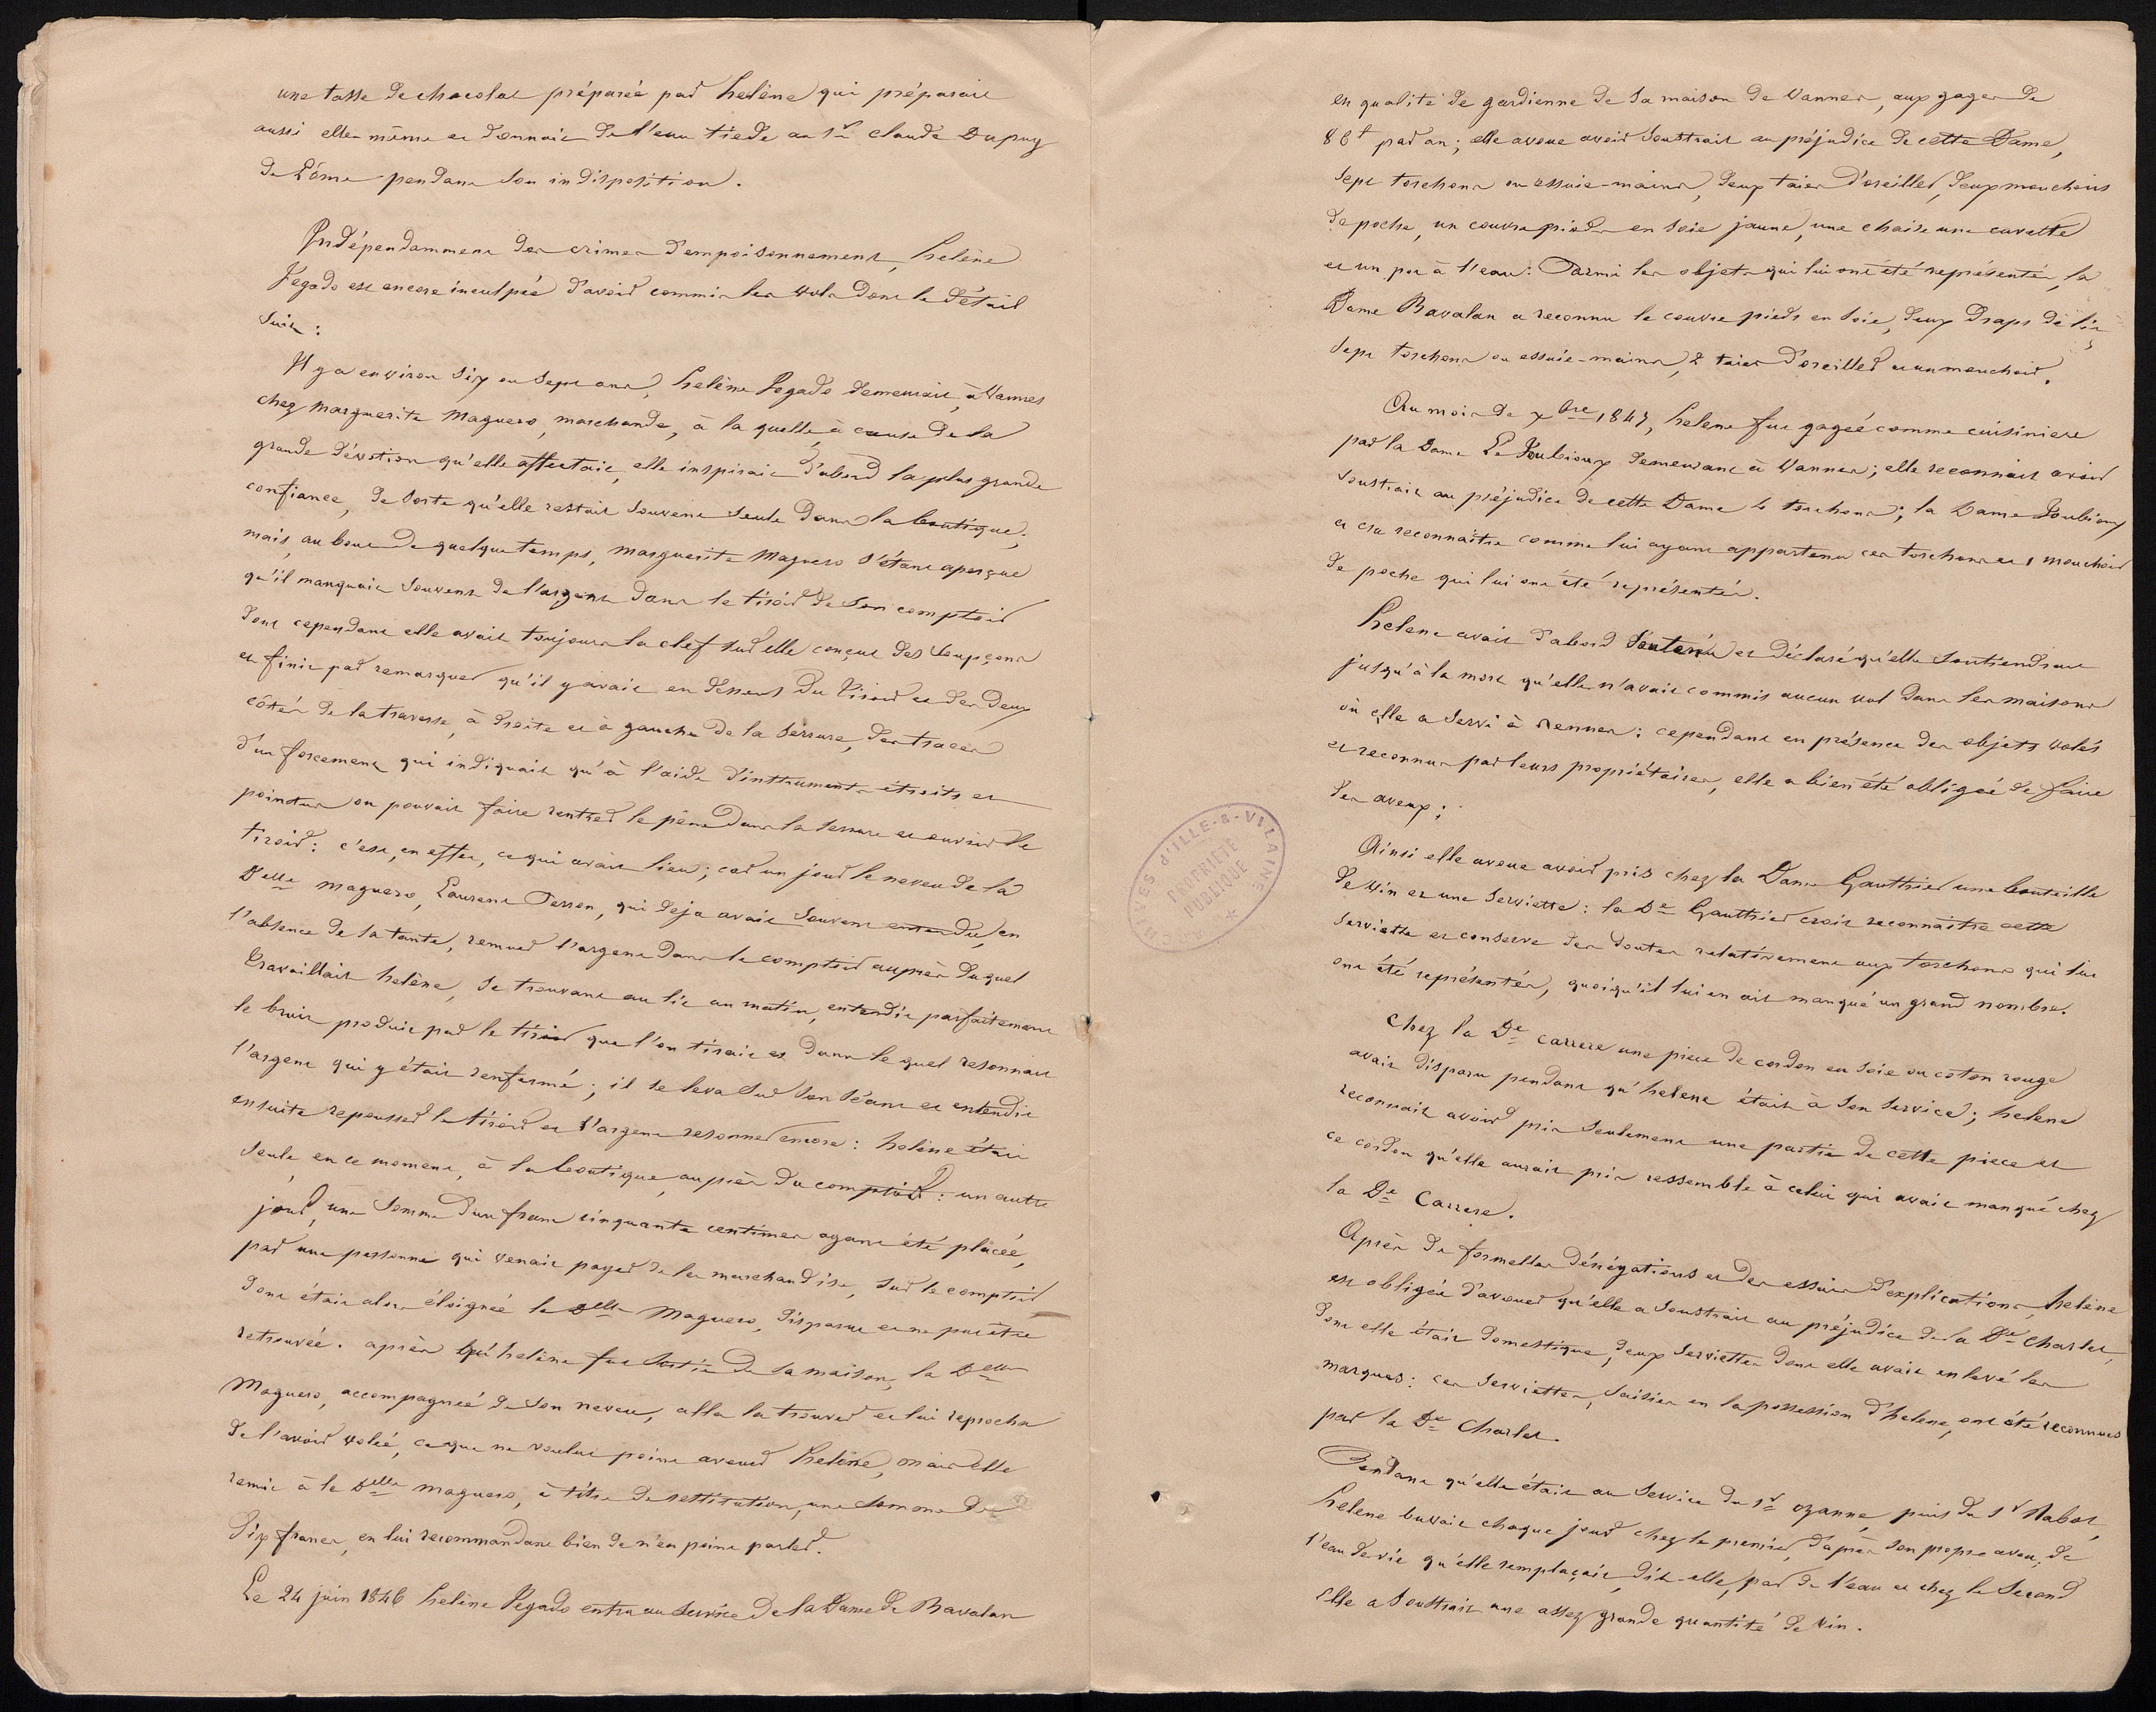 une tasse de chocolat préparée par helène qui préparait
aussi elle-même et donnait de l'eau tiede au Sr claude Dupuy
de Lôme pendant son indisposition.
Indépendamment des crimes d'empoisonnement, helène
Jegado est encore inculpée d'avoir commis les vols dont le détail
suit :
Il y a environ six ou sept ans, helène Jegado demeurait à Vannes
chez marguerite maguero, marchande, à la quelle, à cause de la
grande dévotion qu'elle affectait, elle inspirait d'abord la plus grande
confiance, de sorte qu'elle restait souvent seule dans la boutique ;
mais, au bout de quelque temps, marguerite maguero s'étant aperçue
qu'il manquait souvent de l'argent dans le tiroir de son comptoir
dont cependant elle avait toujours la clef sur elle conçut des soupçons
et finit par remarquer qu'il y avait en dessous du tiroir et des deux
côtés de la traverse, à droite et à gauche de la serrure, des traces
d'un forcement qui indiquait qu'à l'aide d'instruments étroits et
pointus on pouvait faire rentrer le pène dans la serrure et ouvrir le
tiroir : c'est, en effet, ce qui avait lieu ; car un jour le neveu de la
Delle maguero, Laurent Terson, qui deja avait souvent entendu, en
l'absence de sa tante, remuer l'argent dans le comptoir auprès duquel
travaillait helène, se trouvant au lit un matin, entendit parfaitement
le bruit produit par le tiroir que l'on tirait et dans le quel resonnait
l'argent qui y était renfermé ; il se leva sur son séant et entendit
ensuite repousser le tiroir et l'argent resonner encore : helène était
seule, en ce moment, à la boutique, auprès du comptoir : un autre
jour, une somme d'un franc cinquante centimes ayant été placée,
par une personne qui venait payer de la marchandise, sur le comptoir
dont était alors éloignée la Delle Maguero, disparut et ne put être
retrouvée. après qu'helène fut sortie de sa maison, la Delle
Maguero, accompagnée de son neveu, alla la trouver et lui reprocha
de l'avoir volée, ce que ne voulut point avouer helène, mais elle
remit à la Delle maguero, à titre de restitution, une somme de
dix francs, en lui recommandant bien de n'en point parler.
Le 24 juin 1846 helène Jegado entra au service de la Dame de Bavalan
en qualité de gardienne de sa maison de Vannes, aux gages de
86f par an ; elle avoue avoir soustrait au préjudice de cette Dame,
sept torchons ou essuie-mains, deux taies d'oreiller, deux mouchoirs
de poche, un couvre pieds en soie jaune, une chaise une cuvette
et un pot à l'eau : Parmi les objets qui lui ont été représentés, la
Dame Bavalan a reconnu le couvre pieds en soie, deux draps de lit
sept torchons ou essuie-mains, 2 taies d'oreiller et un mouchoir.
Au mois de xbre 1847, helene fut gagée comme cuisiniere
par la Dame Le Joubioux demeurant à Vannes ; elle reconnait avoir
soustrait au préjudice de cette Dame 4 torchons ; la Dame Joubioux
a cru reconnaitre comme lui ayant appartenu ces torchons et 1 mouchoir
de poche qui lui ont été représentés.
helene avait d'abord soutenu et déclaré qu'elle soutiendrait
jusqu'à la mort qu'elle n'avait commis aucun vol dans les maisons
où elle a servi à Rennes : cependant en présence des objets volés
et reconnus par leurs propriétaires, elle a bien été obligée de faire
des aveux ;
Ainsi elle avoue avoir pris chez la Dame Gauthier une bouteille
de vin et une serviette : la De Gauthier croit reconnaitre cette
serviette et conserve des doutes relativement aux torchons qui lui
ont été représentés, quoiqu'il lui en ait manqué un grand nombre.
Chez la De Carrere une piece de cordon en soie ou coton rouge
avait disparu pendant qu'helene était à son service ; helene
reconnait avoir pris seulement une partie de cette piece et
ce cordon qu'elle aurait pris ressemble à celui qui avait manqué chez
la De Carrere.
Après de formelles dénégations et des essais d'explications, helène
est obligée d'avouer qu'elle a soustrait au préjudice de la De Charlet,
dont elle était domestique, deux serviettes dont elle avait enlevé les
marques : ces serviettes, saisies en la possession d'helene, ont été reconnues
par la De Charlet.
Pendant qu'elle était au service du Sr ozanne, puis du Sr Rabot,
helene buvait chaque jour chez le premier, d'après son propre aveu, de
l'eau de vie qu'elle remplaçait, dit-elle, par de l'eau et chez le second
elle a soustrait une assez grande quantité de vin.
ARCHIVES d'ILLE-&-VILAINE
PROPRIÉTÉ
PUBLIQUE